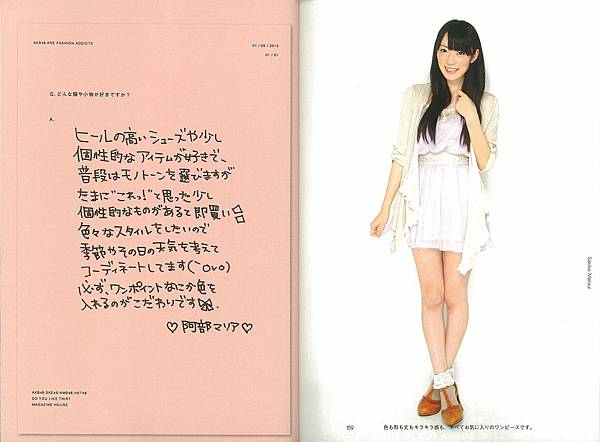 AKB48 ARE FASHION ADDICTS
01 / 05 / 2013
01 / 01
Q. どんな服や小物が好きですか？
A.
ヒールの高いシューズや少し
個性的なアイテムが好きで、
普段はモノトーンを選びますが
たまに"これっ!"と思った少し
個性的なものがあると即買い
色々なスタイルをしたいので
季節やその日の天気を考えて
コーディネートしてます(`ove)
必ず、ワンポイントなにか色を
入れるのがこだわりです
♡阿部マリア♡
AKB48,SKE48,NMB48,HKT48
DO YOU LIKE THIS?
MAGAZINE HOUSE
Sakiko Matsui
159
色も形も丈もキラキラ感も、すべてお気に入りのワンピースです。